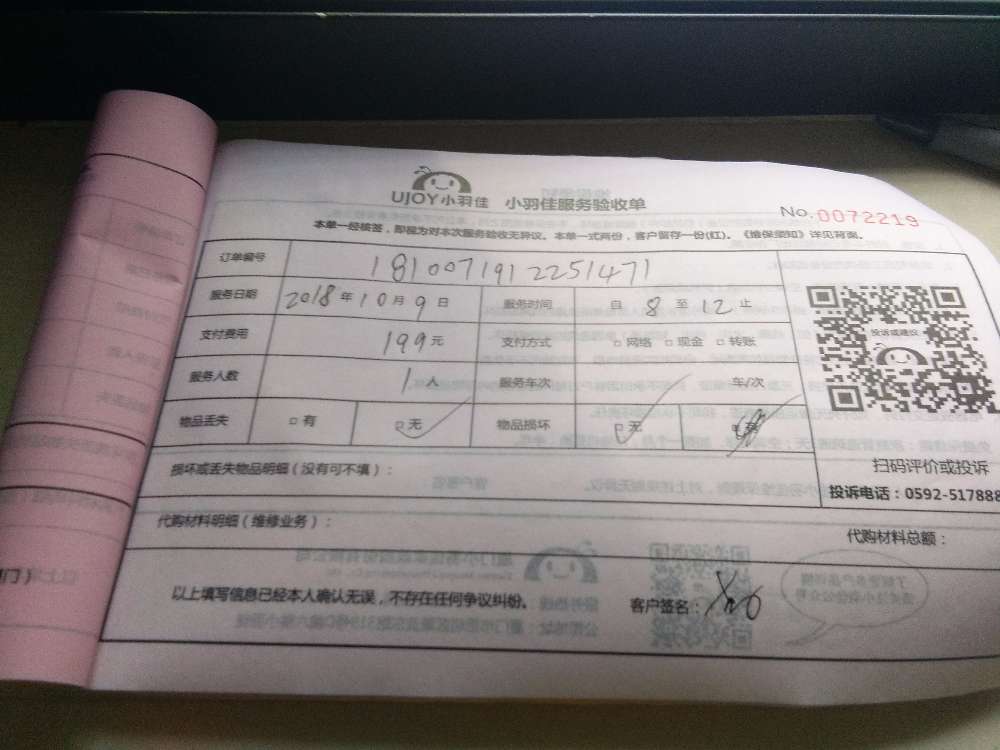 UJOY小羽佳 小羽佳服务验收单
No.0072219
本单一经核签，即视为对本次服务验收无异议。本单一式两份，客户留存一份(红)。《维保须知》详见背面。
订单编号 1810071912251471
服务日期 2018年10月9日 服务时间 自8至12止
支付费用 199元 支付方式 □网络 □现金 □转账
服务人数 1人 服务车次 车/次
物品丢失 □有 □无 物品损坏 □无
投诉或建议
扫码评价或投诉
投诉电话：0592-517888
损坏或丢失物品明细（没有可不填）：
代购材料明细（维修业务）： 代购材料总额：
以上填写信息已经本人确认无误，不存在任何争议纠纷。 客户签名：